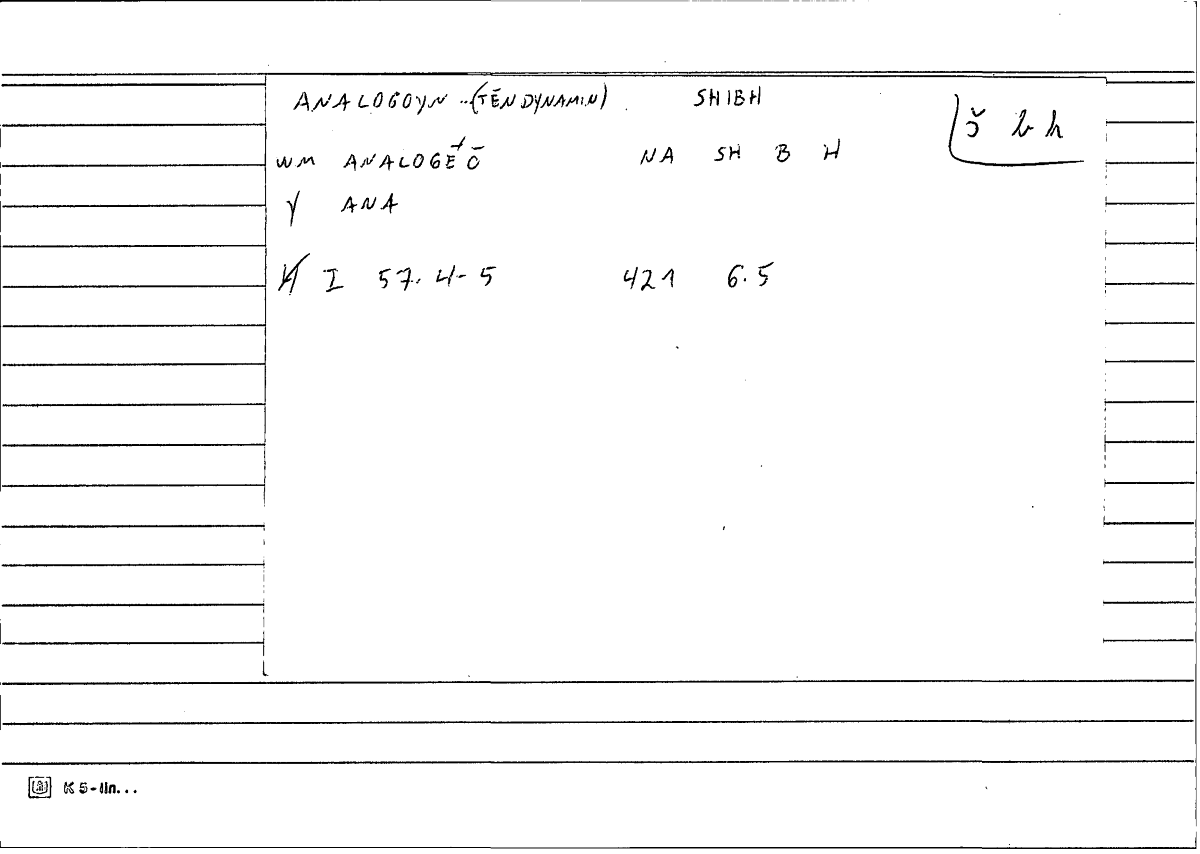 ANALOGOYN ..(TĒN DYNAMIN) SHIBH
š b h
WM ANALOGÉŌ NA SH B H
Y ANA
H I 57. 4-5 421 6.5
K5-lin...